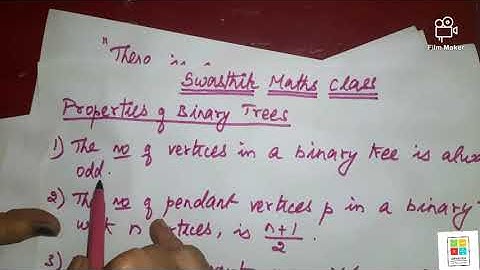 "There is
Swasthik Maths Class
Properties of Binary Trees
1) The no of vertices in a binary tree is
odd.
2) The no of pendant vertices p in a binary
with n vertices, is n+1/2.
3)
Film Maker